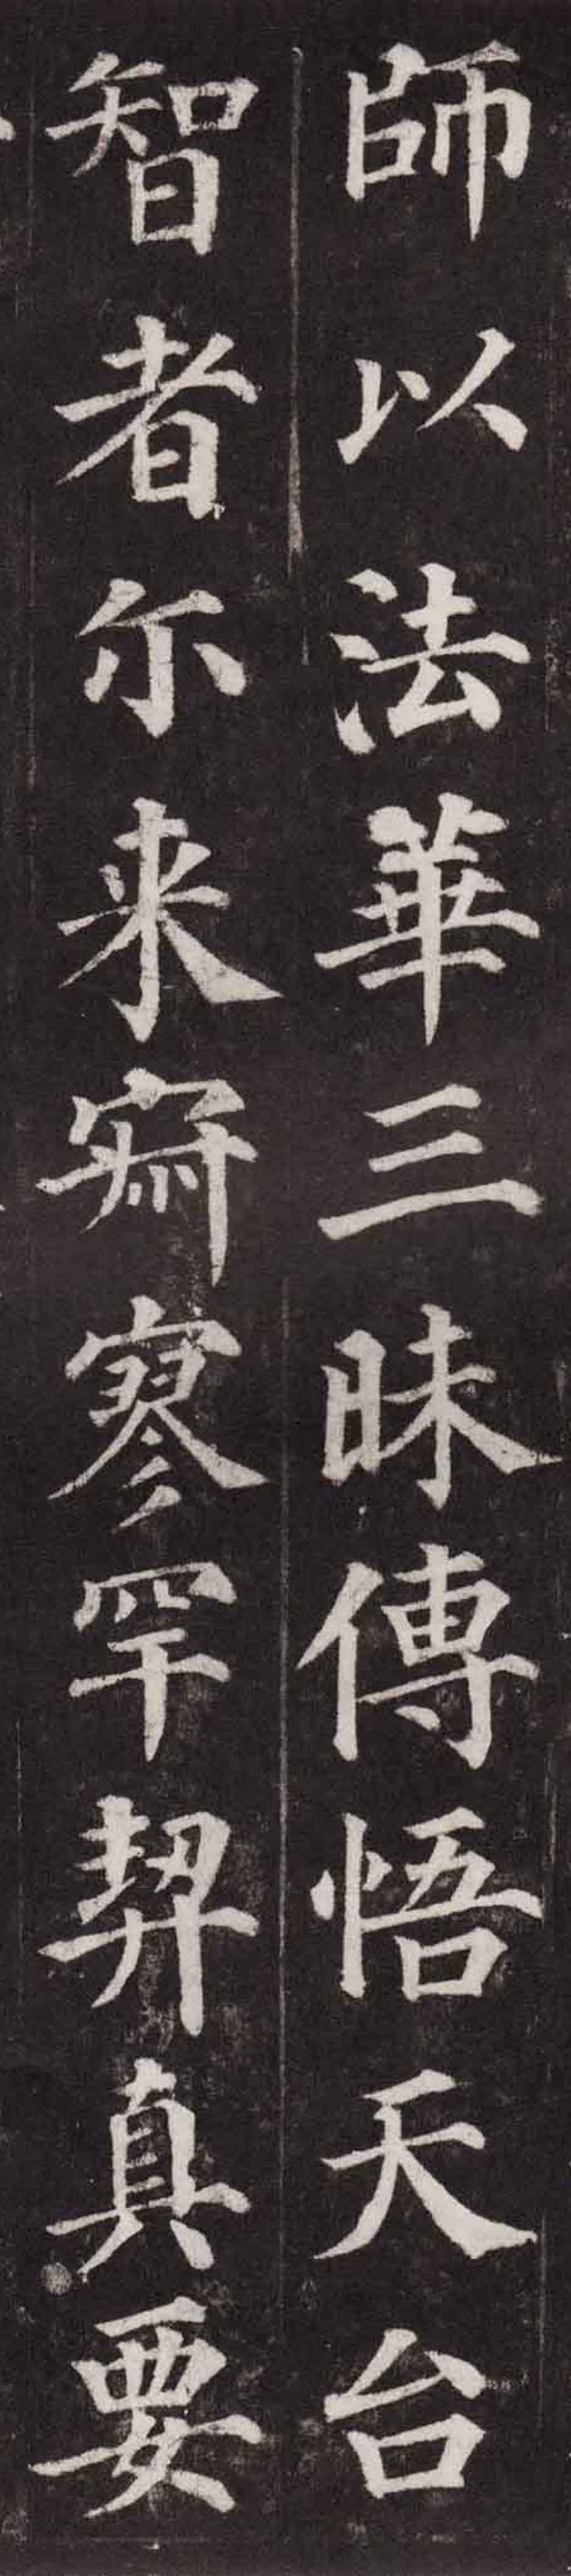 師以法華三昧傳悟天台
智者尔来寂寥罕契真要